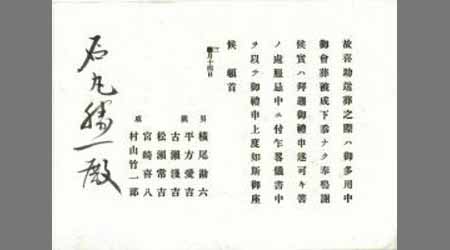 故喜助送葬之際ハ御多用中
御會葬被成下忝ナク奉鳴謝
候實ハ拜趨御禮申述可キ筈
ノ處服忌中ニ付乍畧儀書中
ヲ以テ御禮申上度如斯御座
候 頓首
三月十四日
男 横尾勘六
親 平方愛吉
古瀬淺吉
松瀬常吉
戚 宮崎喜八
村山竹一郎
石丸勝一殿